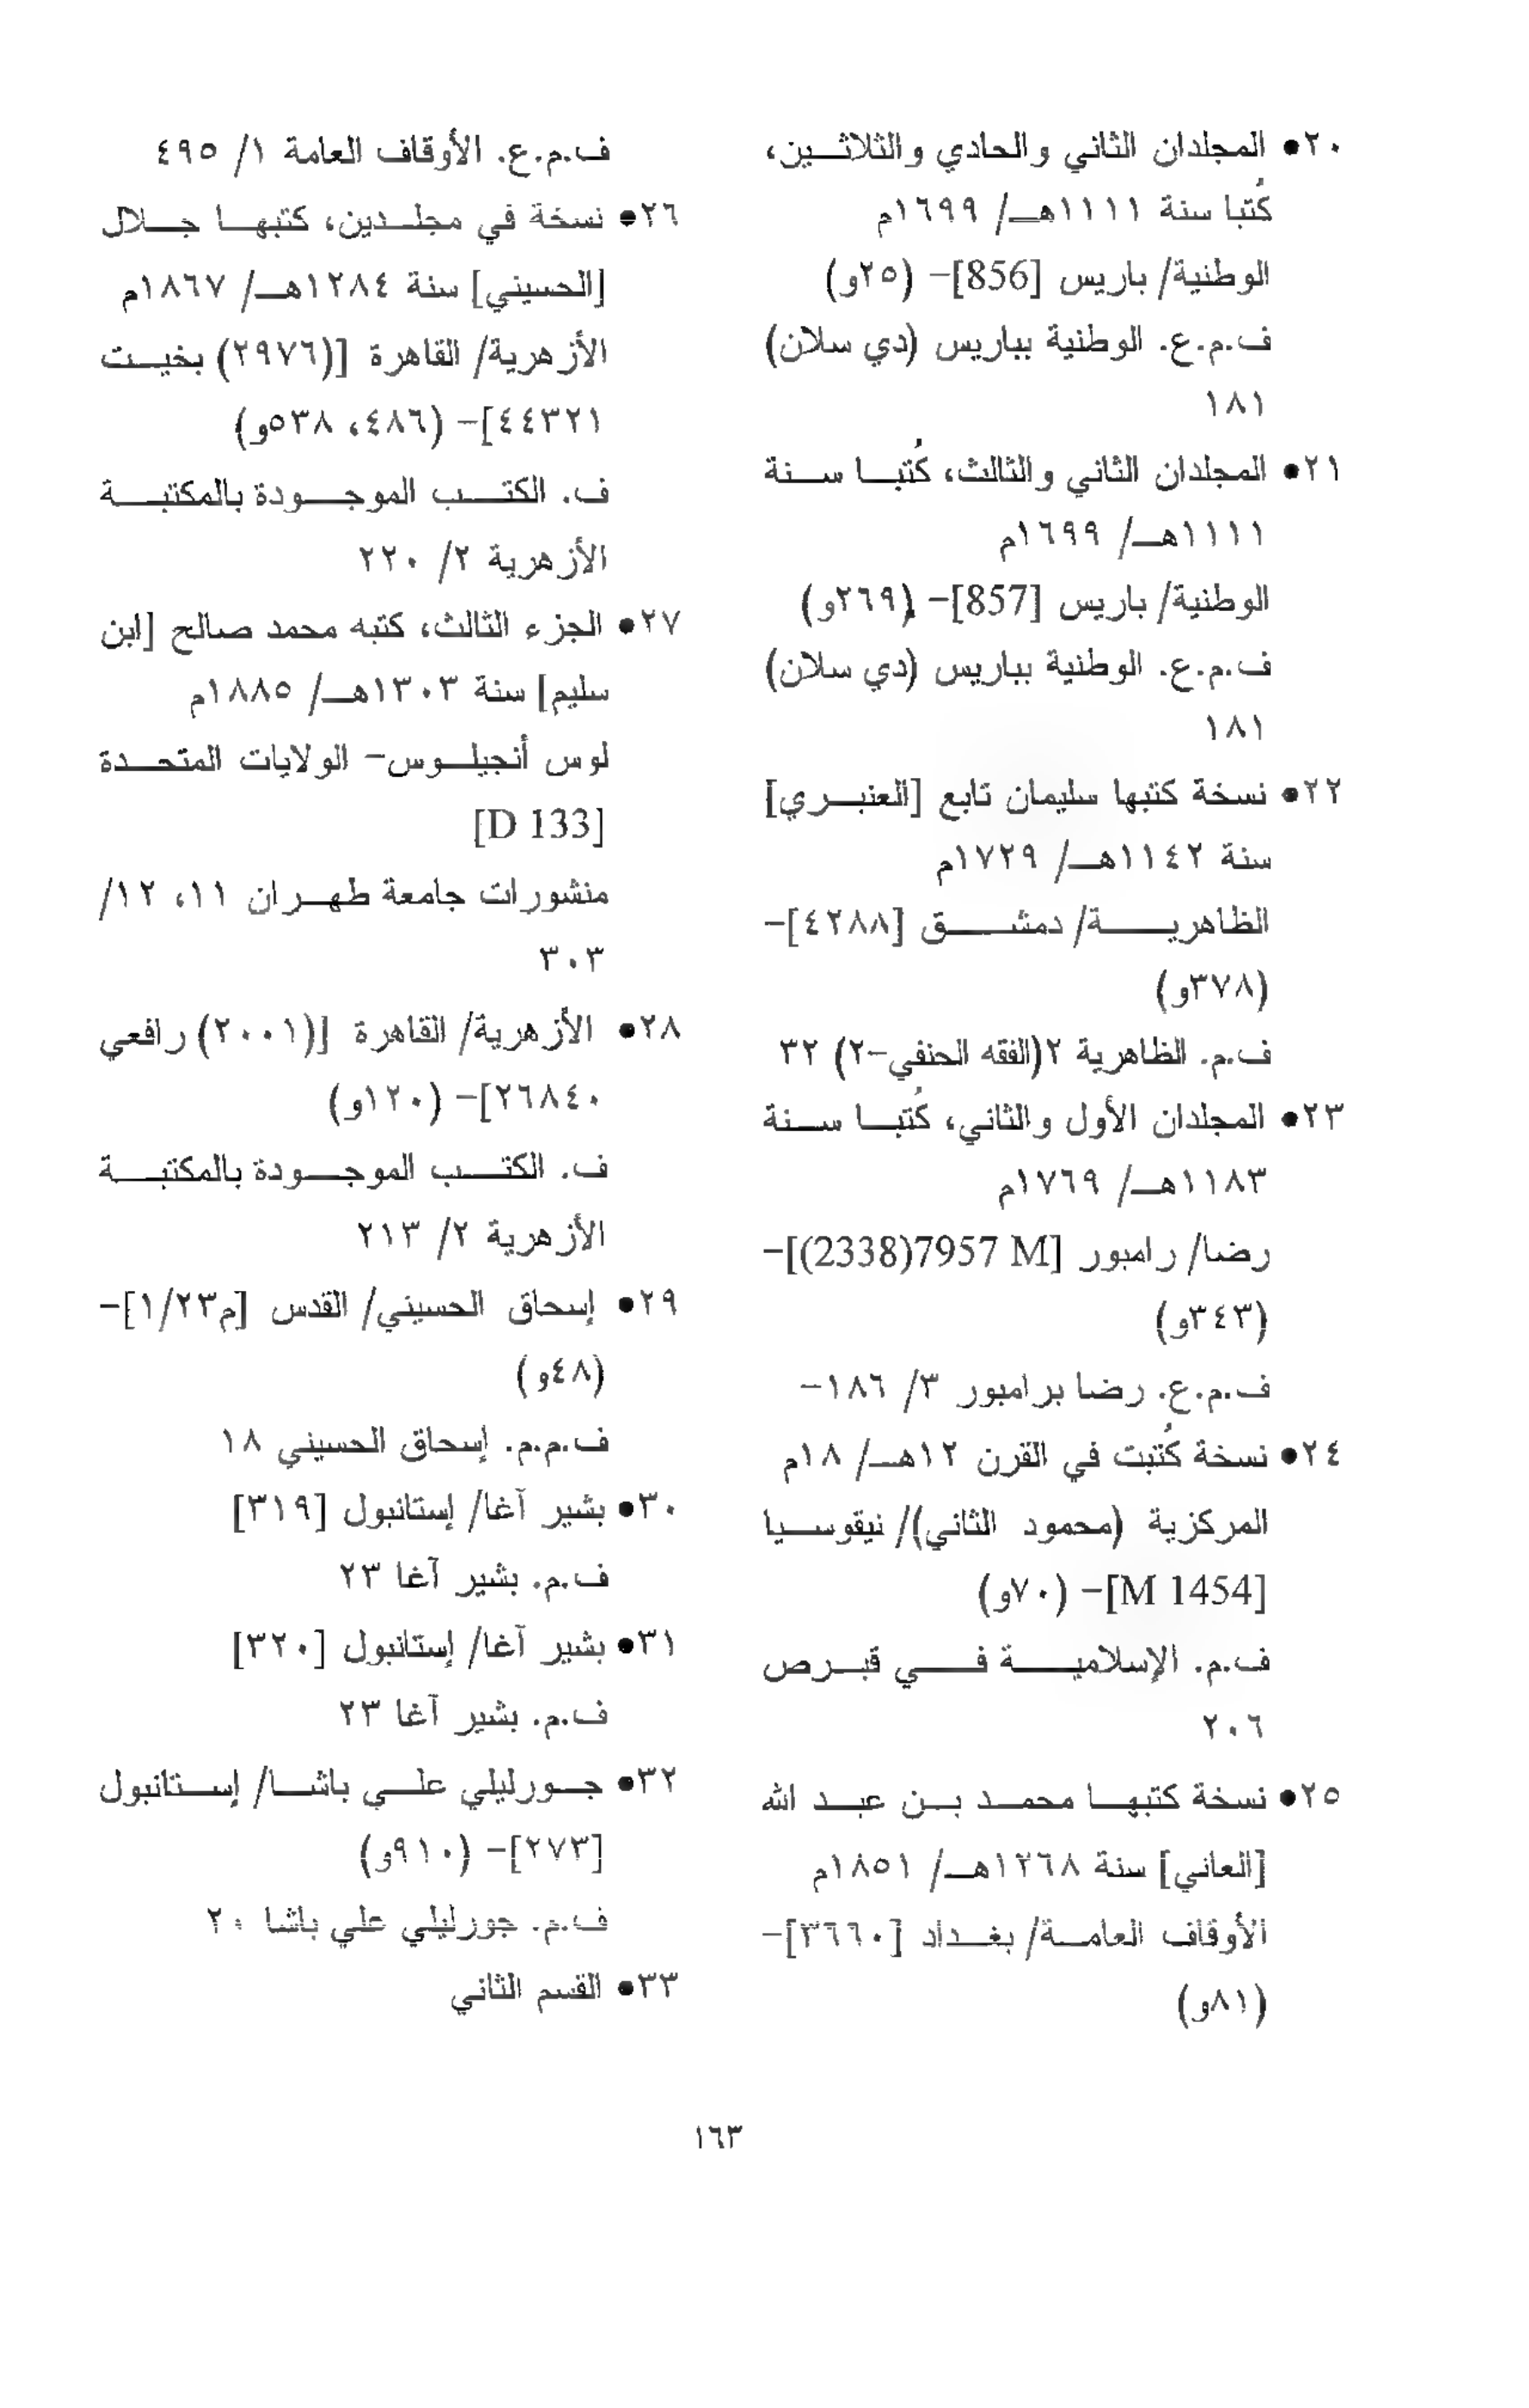 ٢٠● المجلدان الثاني والحادي والثلاثين،
كُتبا سنة ١١١١هـ/ ١٦٩٩م
الوطنية/ باريس [856]- (٢٥و)
ف.م.ع. الوطنية بباريس (دي سلان)
١٨١
٢١● المجلدان الثاني والثالث، كُتبا سنة
١١١١هـ/ ١٦٩٩م
الوطنية/ باريس [857]- (٢٦٩و)
ف.م.ع. الوطنية بباريس (دي سلان)
١٨١
٢٢● نسخة كتبها سليمان تابع [العنبري]
سنة ١١٤٢هـ/ ١٧٢٩م
الظاهرية/ دمشق [٤٢٨٨]-
(٣٧٨و)
ف.م. الظاهرية ٢(الفقه الحنفي-٢) ٣٢
٢٣● المجلدان الأول والثاني، كُتبا سنة
١١٨٣هـ/ ١٧٦٩م
رضا/ رامبور [M 7957(2338)]-
(٣٤٣و)
ف.م.ع. رضا برامبور ٣/ ١٨٦-
٢٤● نسخة كُتبت في القرن ١٢هـ/ ١٨م
المركزية (محمود الثاني)/ نيقوسيا
[M 1454]- (٧٠و)
ف.م. الإسلامية في قبرص
٢٠٦
٢٥● نسخة كتبها محمد بن عبد الله
[العاني] سنة ١٢٦٨هـ/ ١٨٥١م
الأوقاف العامة/ بغداد [٣٦٦٠]-
(٨١و)
ف.م.ع. الأوقاف العامة ١/ ٤٩٥
٢٦● نسخة في مجلدين، كتبها جلال
[الحسيني] سنة ١٢٨٤هـ/ ١٨٦٧م
الأزهرية/ القاهرة [(٢٩٧٦) بخيت
٤٤٣٢١]- (٤٨٦، ٥٣٨و)
ف. الكتب الموجودة بالمكتبة
الأزهرية ٢/ ٢٢٠
٢٧● الجزء الثالث، كتبه محمد صالح [ابن
سليم] سنة ١٣٠٣هـ/ ١٨٨٥م
لوس أنجيلوس- الولايات المتحدة
[D 133]
منشورات جامعة طهران ١١، ١٢/
٣٠٣
٢٨● الأزهرية/ القاهرة [(٢٠٠١) رافعي
٢٦٨٤٠]- (١٢٠و)
ف. الكتب الموجودة بالمكتبة
الأزهرية ٢/ ٢١٣
٢٩● إسحاق الحسيني/ القدس [م١/٢٣]-
(٤٨و)
ف.م.م. إسحاق الحسيني ١٨
٣٠● بشير آغا/ إستانبول [٣١٩]
ف.م. بشير آغا ٢٣
٣١● بشير آغا/ إستانبول [٣٢٠]
ف.م. بشير آغا ٢٣
٣٢● جورليلي علي باشا/ إستانبول
[٢٧٣]- (٩١٠و)
ف.م. جورليلي علي باشا ٢٠
٣٣● القسم الثاني
١٦٣